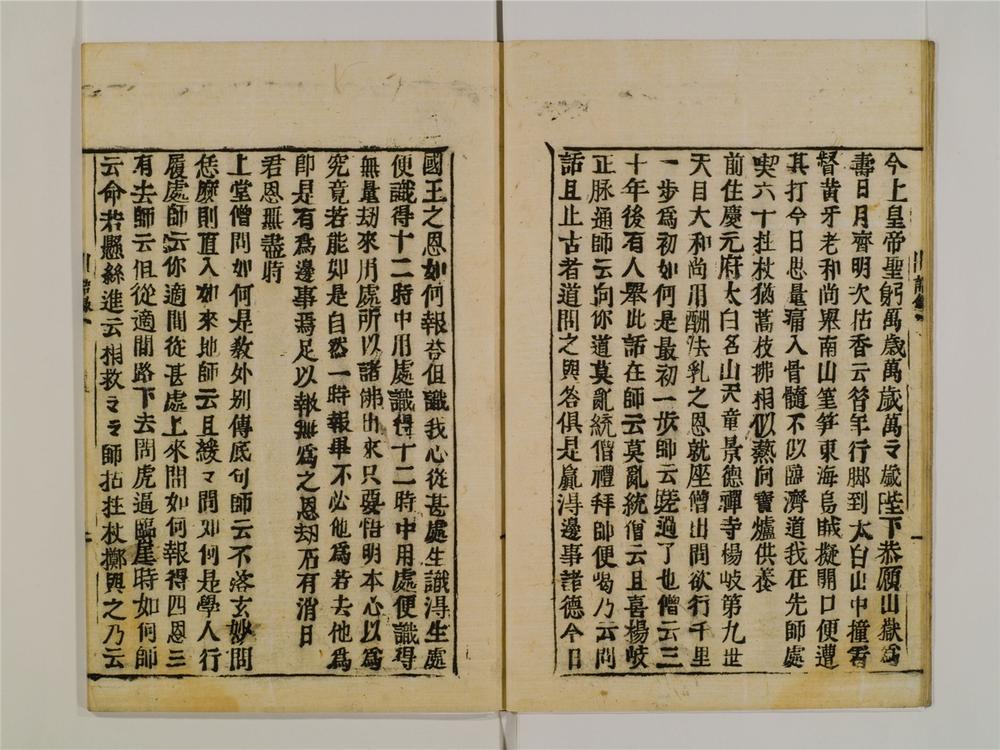 今上皇帝聖躬萬歲萬歲萬々歲陛下恭願山嶽爲
壽日月齊明次拈香云昔年行脚到太白山中撞着
督黄牙老和尚舉南山筀笋東海烏賊擬開口便遭
其打今日思量痛入骨髓不似臨濟道我在先師處
喫六十拄杖猶蒿枝拂相似爇向寶爐供養
前住慶元府太白名山天童景德禪寺楊岐第九世
天目大和尚用酬法乳之恩就座僧出問欲行千里
一步爲初如何是最初一步師云蹉過了也僧云三
十年後有人舉此話在師云莫亂統僧云且喜楊岐
正脉通師云向你道莫亂統僧禮拜師便喝乃云問
話且止古者道問之與荅俱是贏得邊事諸德今日
國王之恩如何報荅但識我心從甚處生識得生處
便識得十二時中用處識得十二時中用處便識得
無量刼來用處所以諸佛出來只要悟明本心以爲
究竟若能如是自然一時報畢不必他爲若去他爲
即是有爲邊事焉足以報無爲之恩刼石有消日
君恩無盡時
上堂僧問如何是敎外别傳底句師云不落玄妙問
恁麽則直入如來地師云且緩々問如何是學人行
履處師云你適間從甚處上來問如何報得四恩三
有去師云但從適間路下去問虎逼臨崖時如何師
云命若懸絲進云相救々々師拈拄杖擲與之乃云
語錄